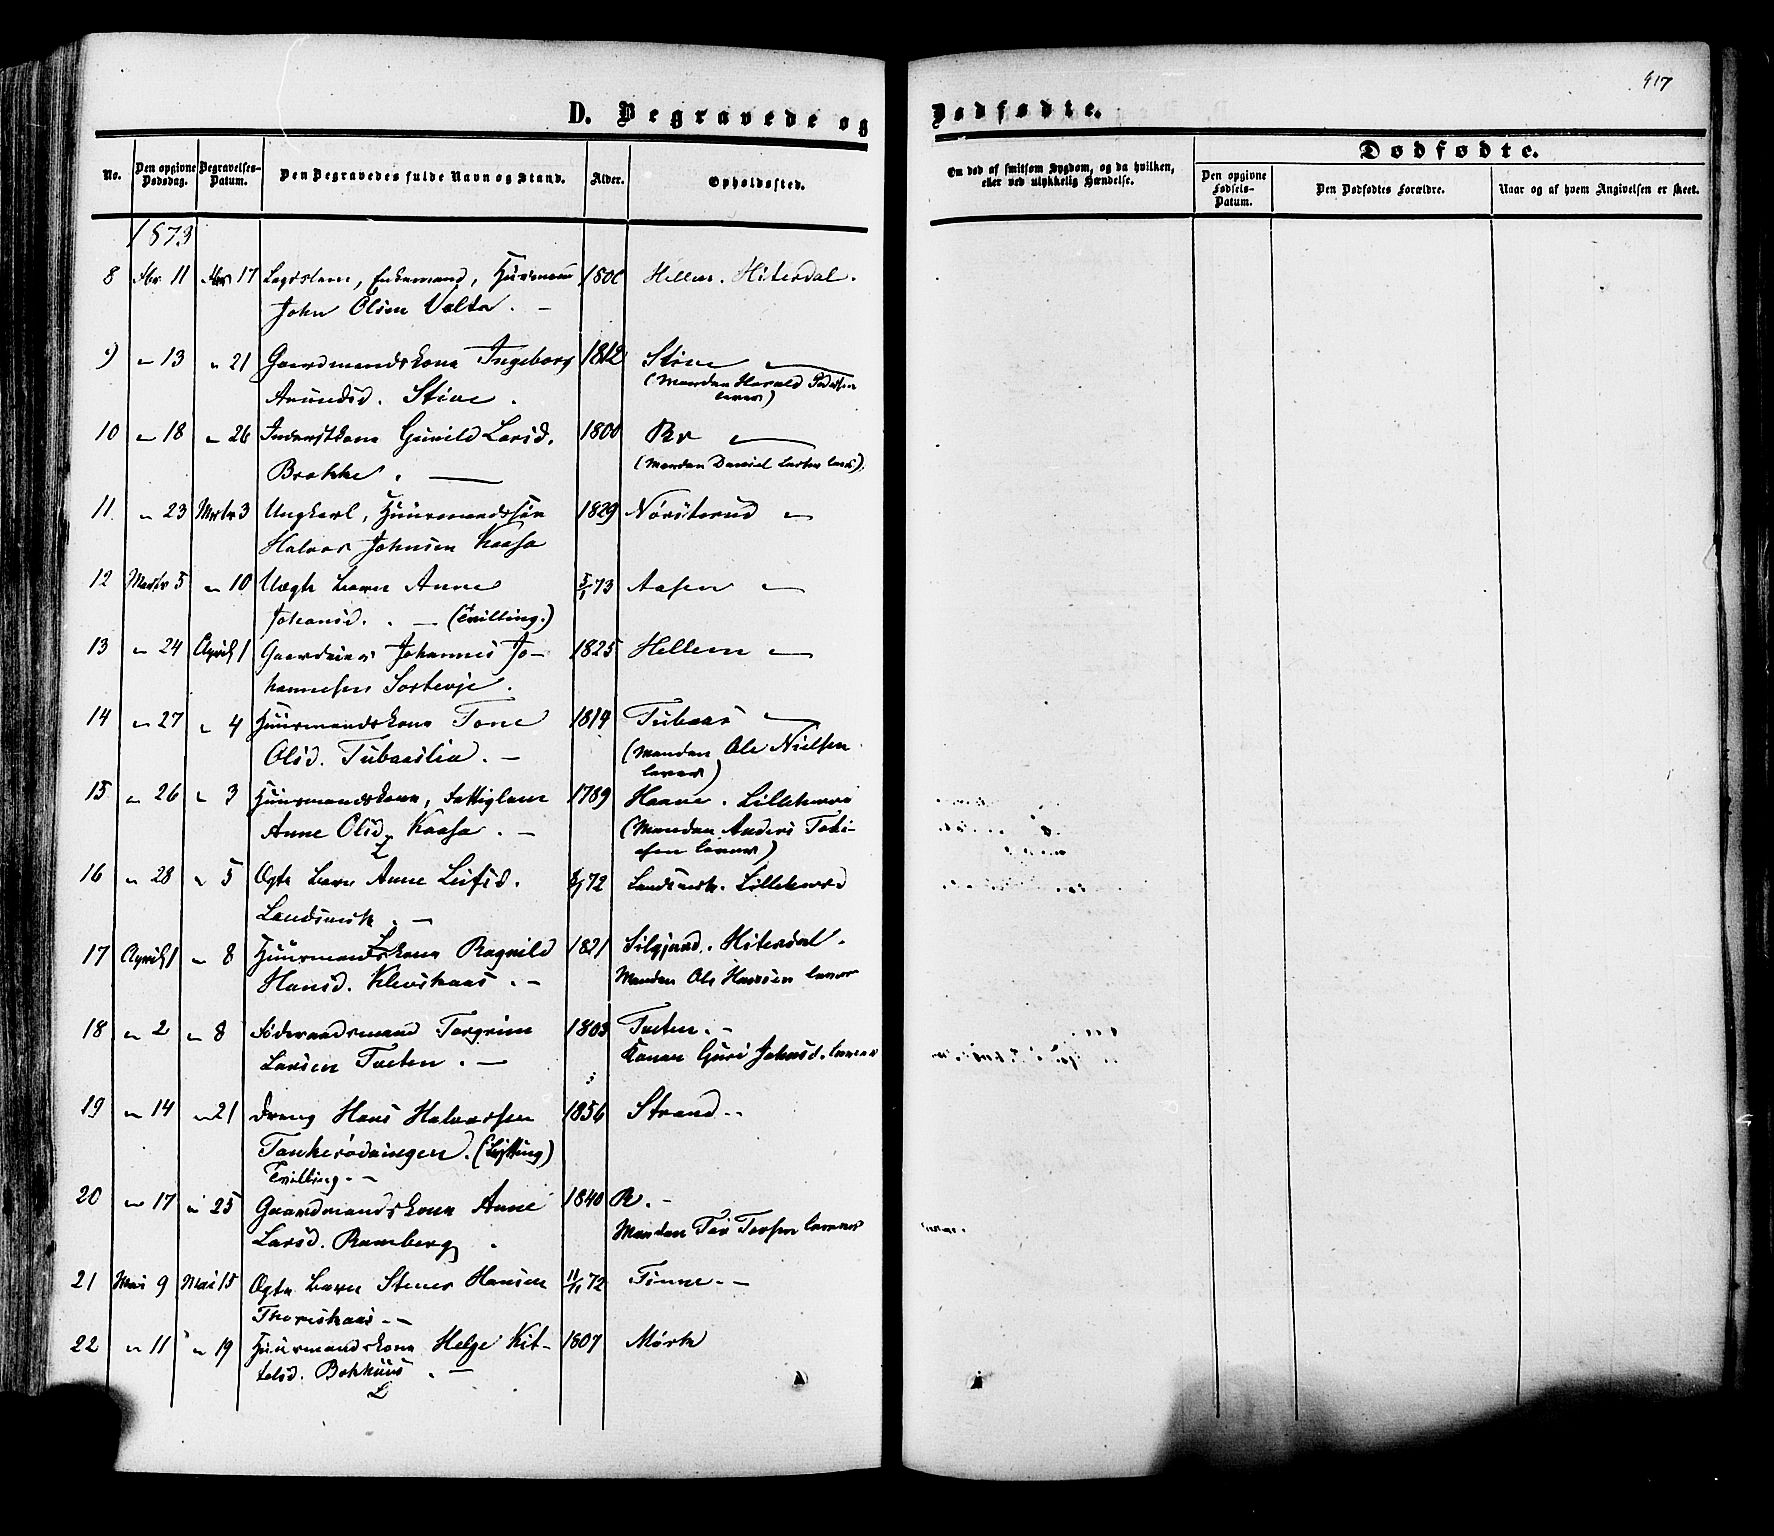 917
D. Begravede og Dødfødte.
No. Den opgivne Dødsdag. Begravelses-Datum. Den Begravedes fulde Navn og Stand. Alder. Opholdssted.
Om død af smitsom Sygdom, og da hvilken, eller ved ulykkelig Hændelse.
Dødfødte.
Den opgivne Fødsels-Datum. Den Dødfødtes Forældre. Naar og af hvem Angivelsen er skeet.
1873
8 11 17 Enkemand, Huusmand 180 Hellem. Hiterdal.
John Olsen
9 " 13 " 21 Gaardmandskone Ingeborg 1812 Stive "
Amundsd. Stive. (Manden Harald Pedersen
lever)
10 " 18 " 26 Inderstkone Gunild Larsd. 1800 Ry "
Brokke. (Manden Daniel lever).
11 " 23 Marts 3 Ungkarl, Huusmandssøn 1829 Nørsterud "
Halvor Johnsen Kaasa
12 Marts 5 " 10 Uægte Barn Anne 5/1 73 Aasen "
Johansd. (Tvilling.)
13 " 24 April 1 Johannes Jo- 1825 Hellem "
hannesen Sortevje.
14 " 27 " 4 Huusmandskone Tone 1814 Tubaas "
Olsd. Tubaaslia. (Manden Ole Nielsen
lever)
15 " 26 " 3 Huusmandskone, Fattiglem 1789 Haave. Lilleherre
Anne Olsd. Kaasa. (Manden Anders
lever)
16 " 28 " 5 Ægte Barn Anne Leifsd. 72 Landsverk. Lilleherred
Landsverk.
17 April 1 " 8 Huusmandskone Ragnild 1821 Hiterdal.
Hansd. Manden Ole Hansen lever
18 " 2 " 8 Føderaadsmand Torgrim 1803 Tveten.
Larsen Tveten. Konen Guri Johnsd. lever
19 " 14 " 21 Dreng Hans Halvorsen 1856 Strand
Tankerødningen.
Tvilling.
20 " 17 " 25 Gaardmandskone Anne 1840 R.
Larsd. Ramberg. Manden lever
21 Mai 9 Mai 15 Ægte Barn Stener Hansen 11/11 72 Tinne
22 " 11 " 19 Huusmandskone Helge Kit- 1807 Mørk
telsd. Bakhuus.